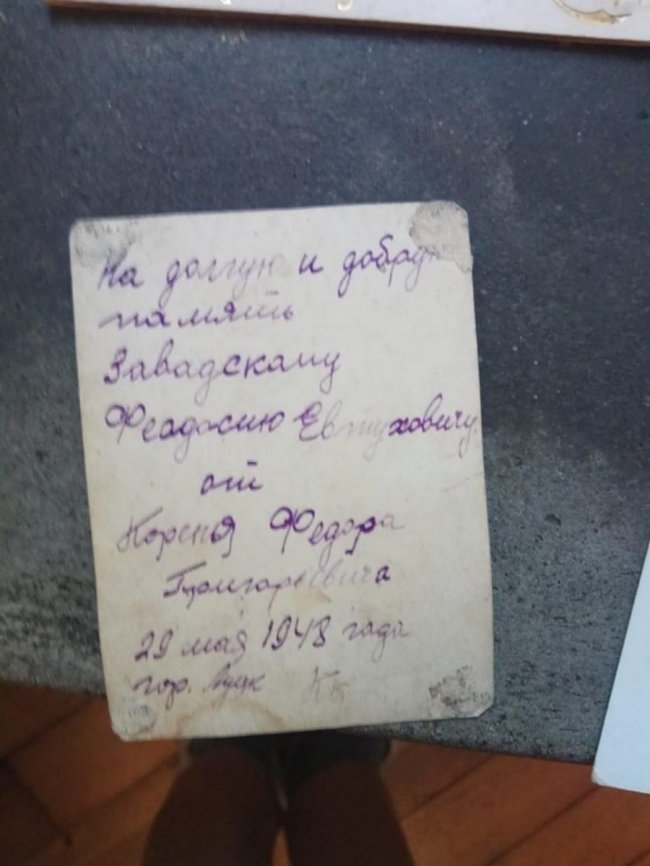 На долгую и добрую
память
Завадскому
Феодосию Евтуховичу
от
Корня Федора
29 мая 1948 года
гор. Луцк